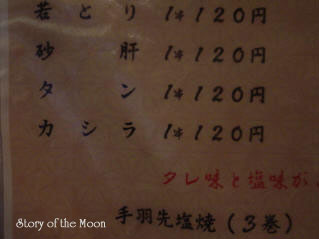 若とり 1本 120円
砂肝 1本 120円
タン 1本 120円
カシラ 1本 120円
タレ味と塩味が
手羽先塩焼(3巻)
Story of the Moon